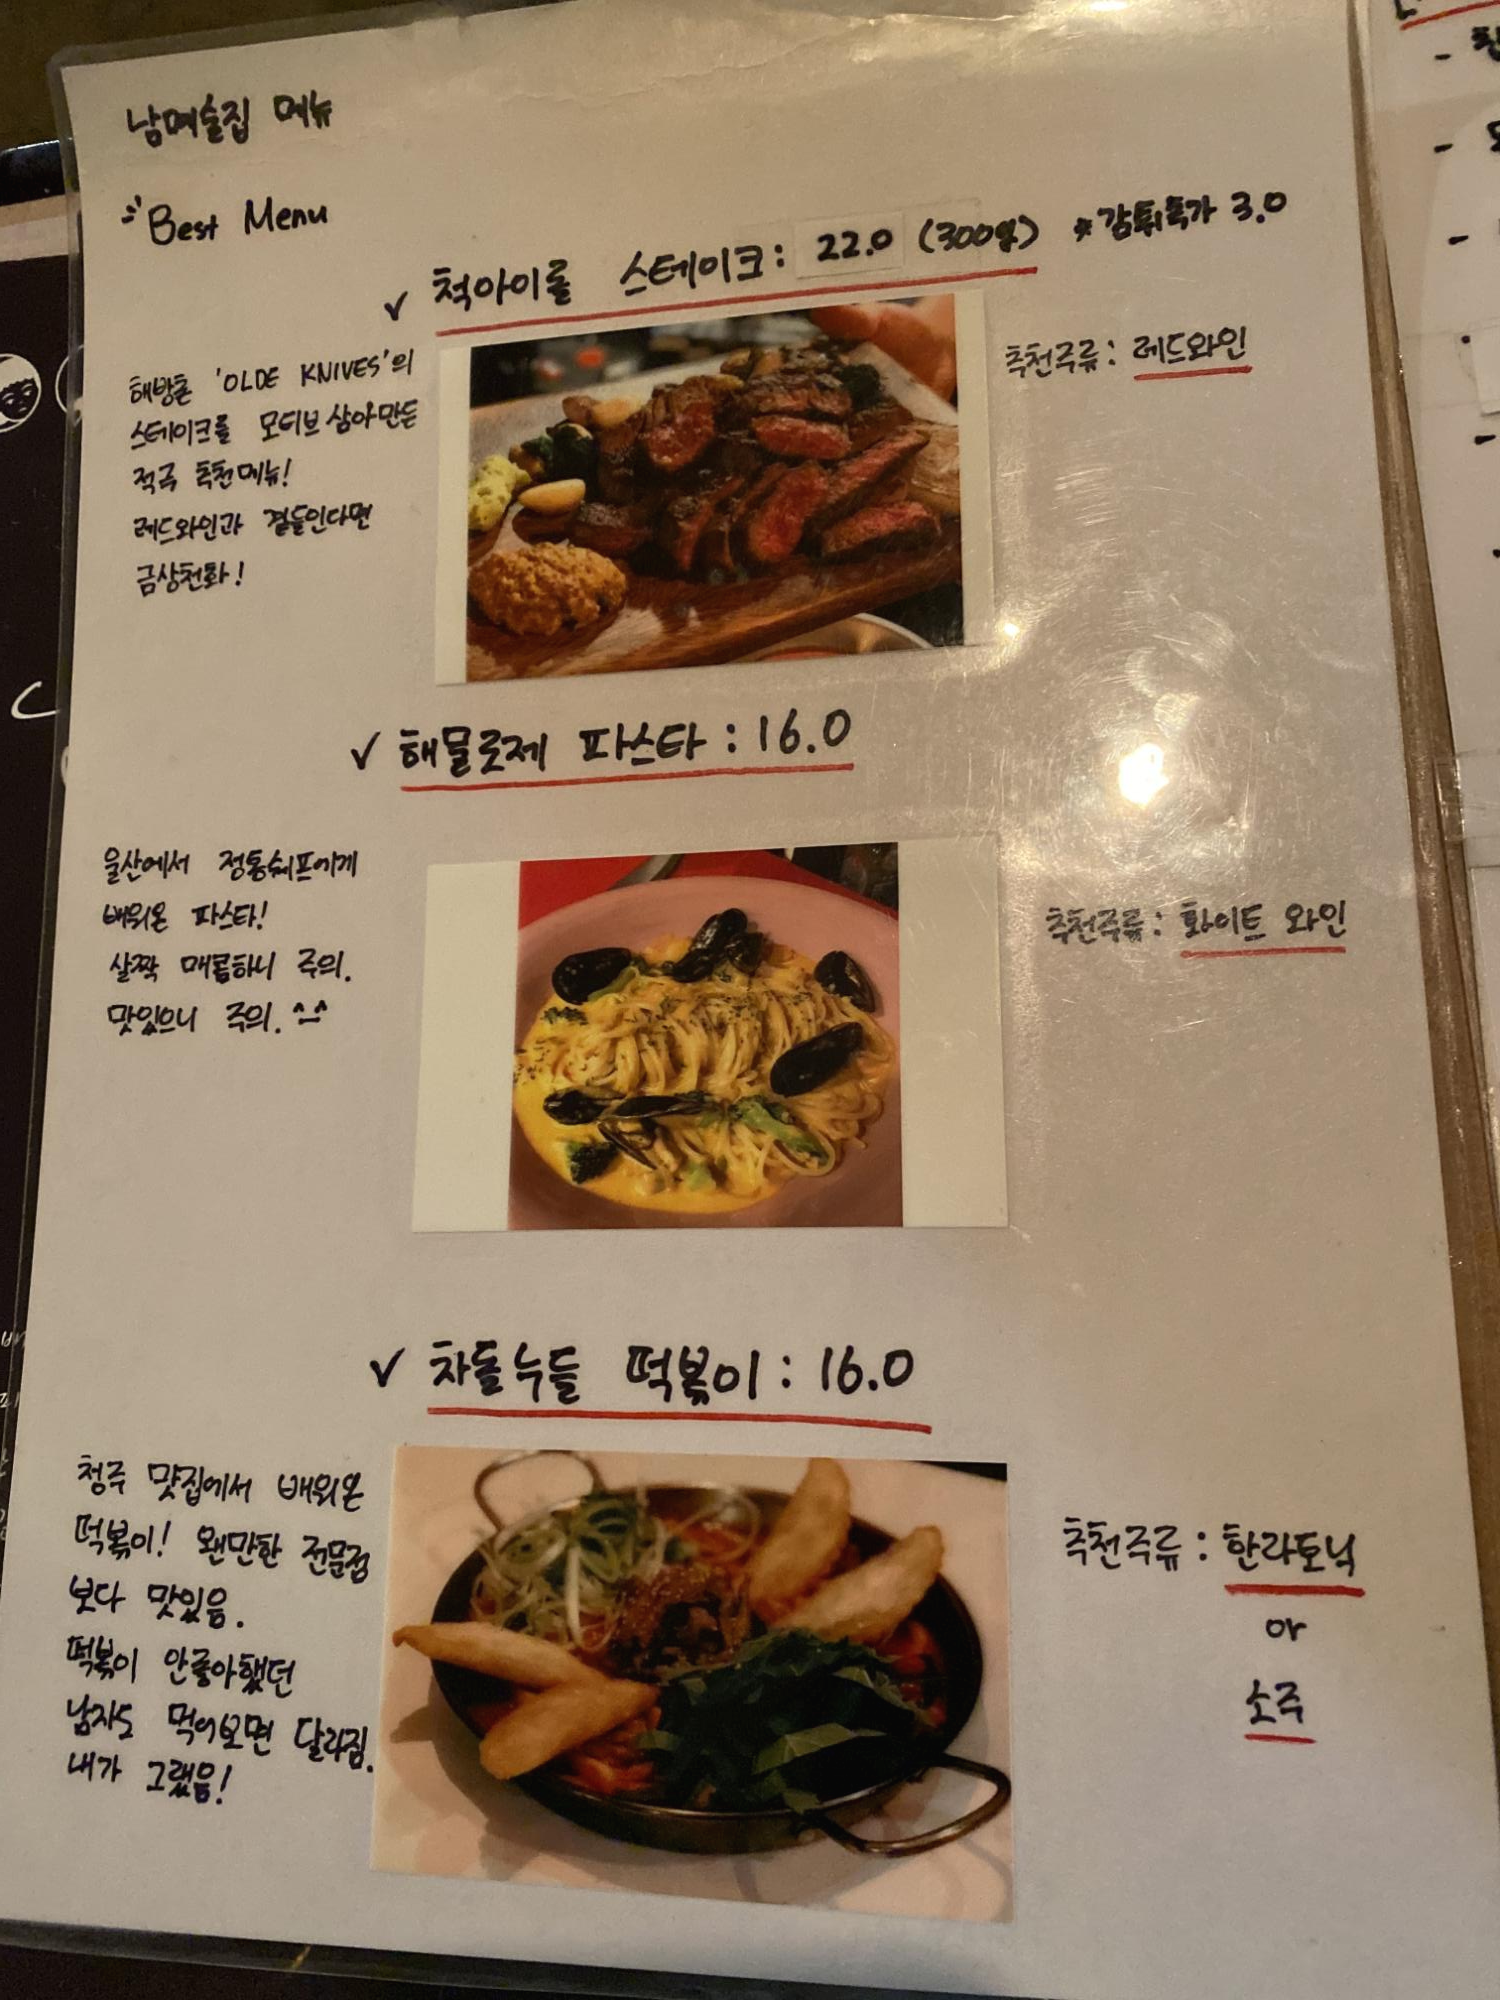 남메술집 메뉴
Best Menu
✓ 척아이롤 스테이크: 22.0 (300g) *감튀추가 3.0
해방촌 'OLDE KNIVES'의
스테이크를 모티브 삼아만든
적극 추천메뉴!
레드와인과 곁들인다면
금상첨화!
추천주류: 레드와인
✓ 해물로제 파스타 : 16.0
울산에서 정통쉐프에게
배워온 파스타!
살짝 매콤하니 주의.
맛있으니 주의. ^-^
추천주류: 화이트 와인
✓ 차돌누들 떡볶이 : 16.0
청주 맛집에서 배워온
떡볶이! 왠만한 전문점
보다 맛있음.
떡볶이 안좋아했던
남자도 먹어보면 달라짐.
내가 그랬음!
추천주류 : 한라토닉
or
소주